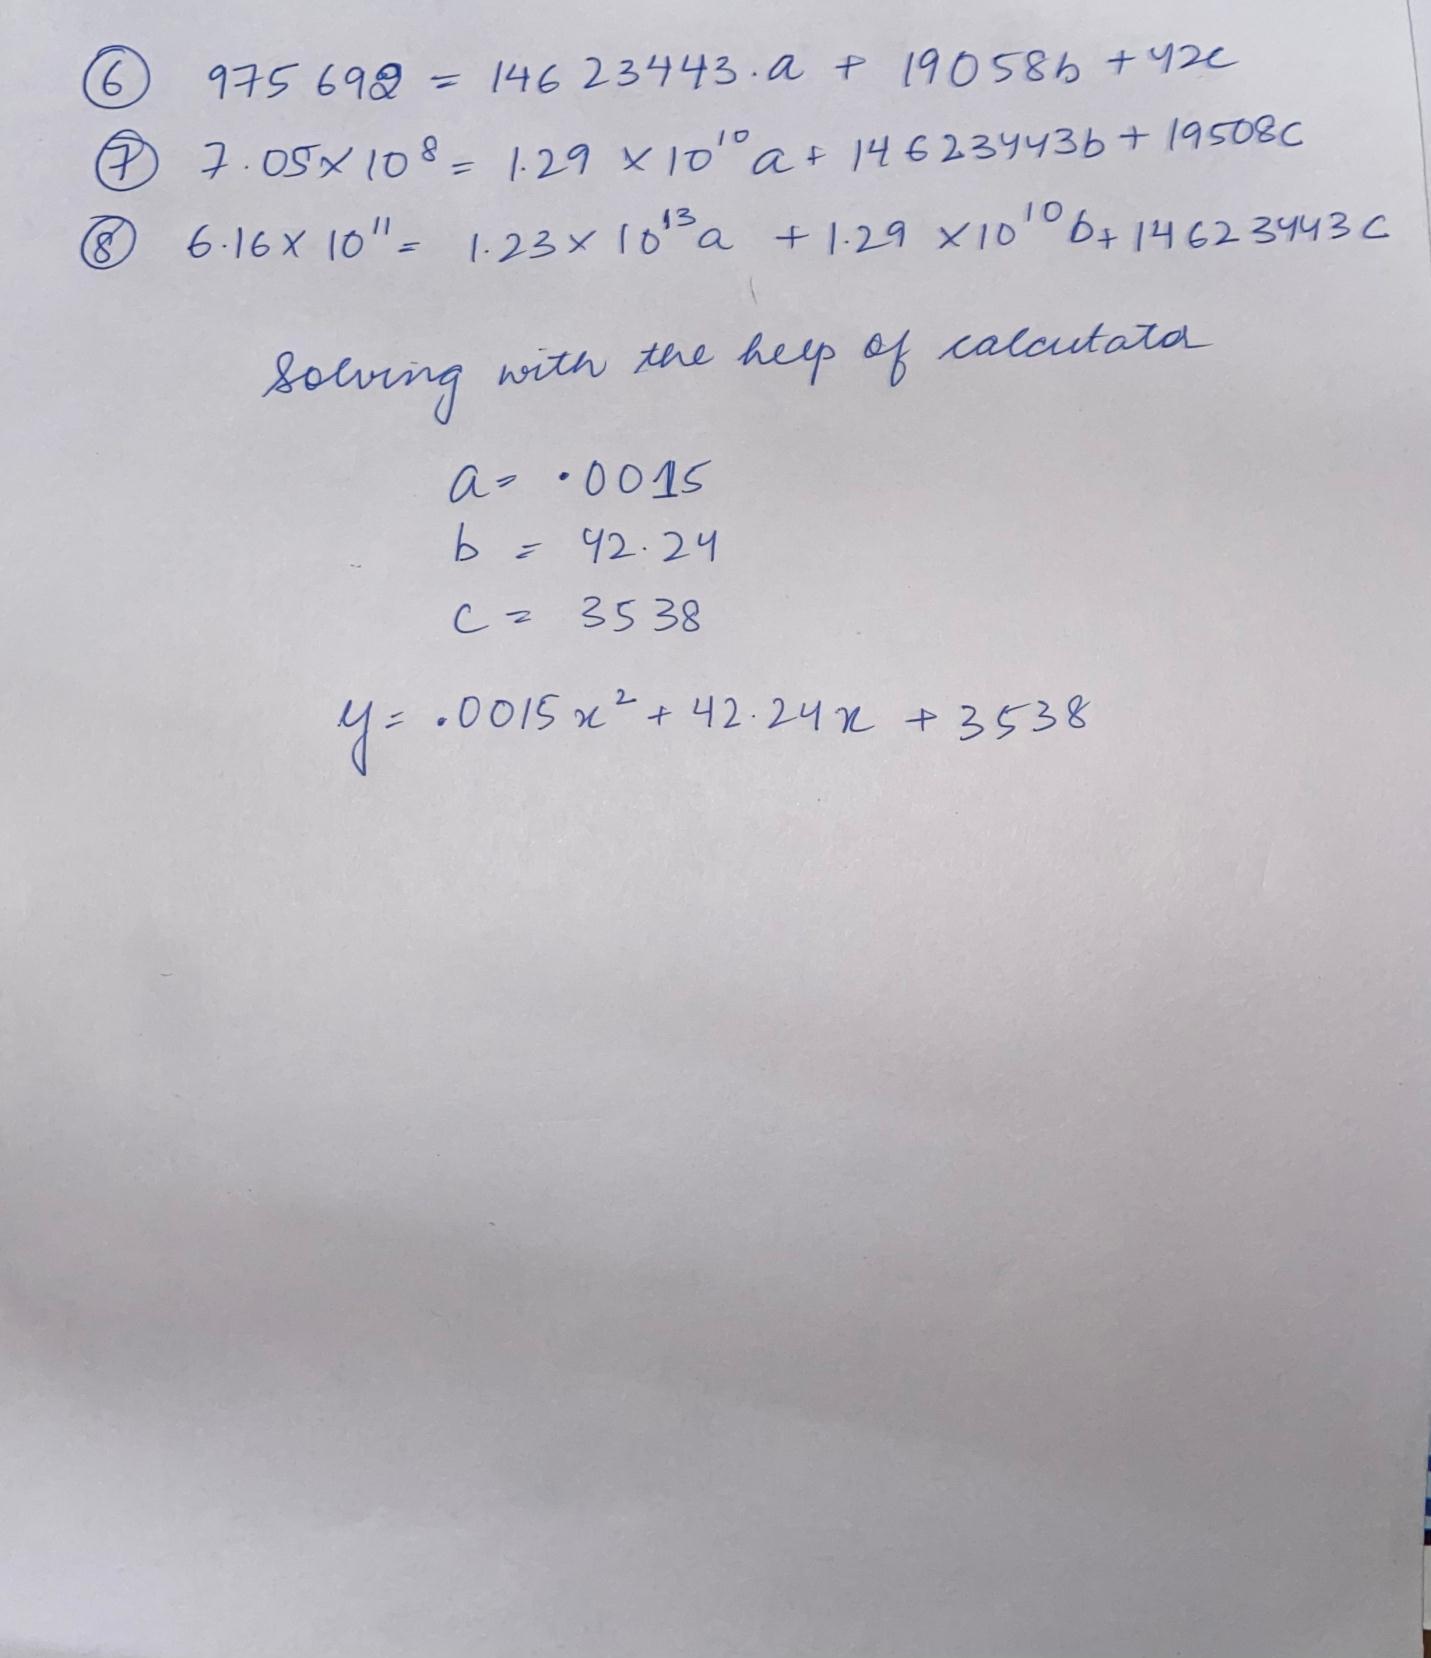 ⑥ 975692 = 14623443.a + 19058b + 42c
⑦ 7.05 x 10⁸ = 1.29 x 10¹⁰ a + 14623443b + 19508c
⑧ 6.16 x 10¹¹ = 1.23 x 10¹³a + 1.29 x 10¹⁰b + 14623443c
Solving with the help of calcutator
a = .0015
b = 42.24
c = 3538
y = .0015x² + 42.24x + 3538